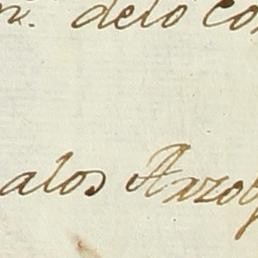 n. delo co
alos Arzob